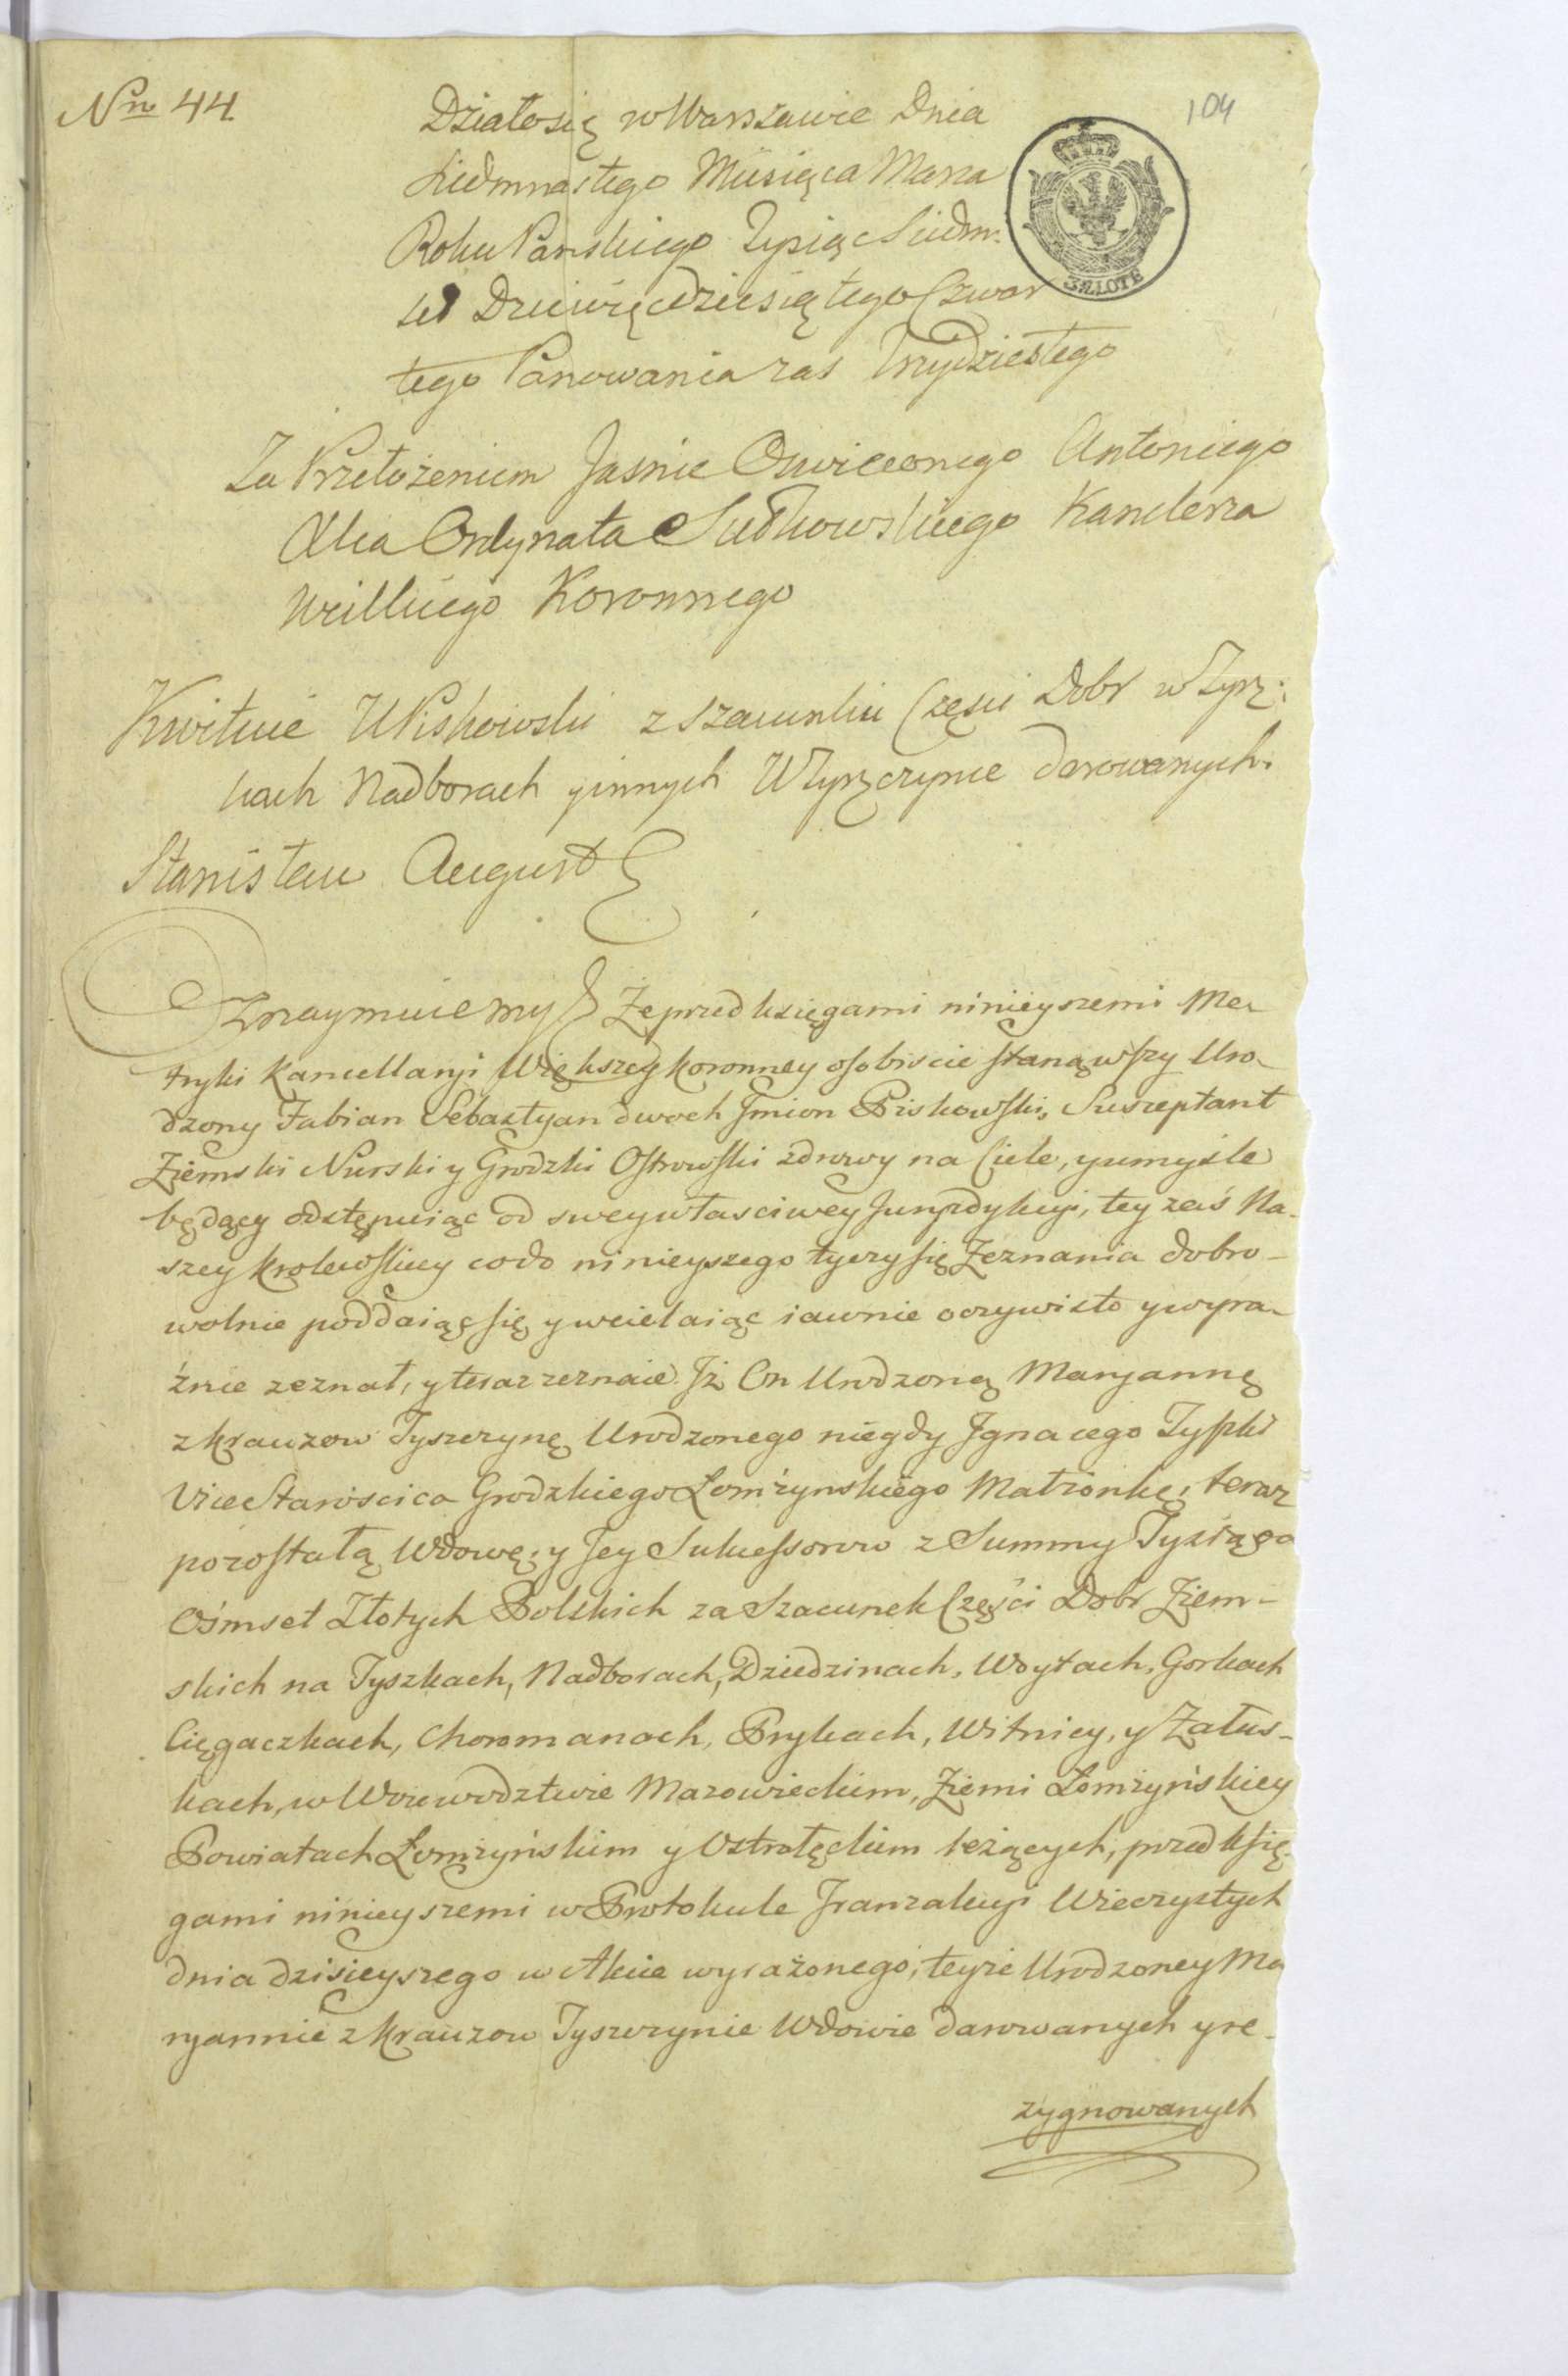 Nro 44.
104
Działosię w Warszawie Dnia
Siedmnastego Miesiąca Marca
Roku Panskiego Tysiąc Siedm:
set Dziewięcdziesiątego Czwar
tego Panowania zas Trzydziestego
3 ZŁOTE
Za Przełożeniem Jasnie Oswieconego Antoniego
Xcia Ordynata Sułkowskiego Kanclerza
Wielkiego Koronnego
Kwituie U Piskowski z szacunku Częsci Dobr w Tysz:
kach Nadborach yinnych W Tyszczynie darowanych.
Stanisław August
Oznaymuiemy Żeprzed księgami ninieyszemi Me-
tryki Kancellaryi Większey koronney osobiscie stanąwszy Uro-
dzony Fabian Sebastyan dwoch Jmion Piskowski, Susceptant
Ziemski Nurski y Grodzki Ostrowski zdrowy na Ciele, yumyśle
będący odstępuiąc od swey własciwey Juryzdykcyi, tey zaś Na-
szey krolewskiey codo ninieyszego tyczy się Zeznania dobro-
wolnie poddaiąc się y wcielaiąc iawnie oczywisto ywyra-
źnie zeznał, y teraz zeznaie. Jż On Urodzoną Maryannę
z krauzow Tyszczynę Urodzonego niegdy Jgnacego Tyszki
ViceStaroscica Grodzkiego Łomżynskiego Małżonkę, teraz
pozostałą Wdowę, y Jey Sukcessorow z Summy Tysiąca
Ośmset Złotych Polskich za Szacunek Części Dobr Ziem-
skich na Tyszkach, Nadborach, Dziedzinach, Woytach, Gorkach
Cięgaczkach, Choromanach, Prykach, Witnicy, y Załus-
kach, w Woiewodztwie Mazowieckim, Ziemi Łomżyńskiey
Powiatach Łomżyńskim y Ostrołęckim leżących, przed Księ-
gami ninieyszemi w Protokule Tranzakcyi Wieczystych
dnia dzisieyszego w Akcie wyrażonego, teyże Urodzoney Ma
ryannie z krauzow Tyszczynie Wdowie darowanych yre-
zygnowanych